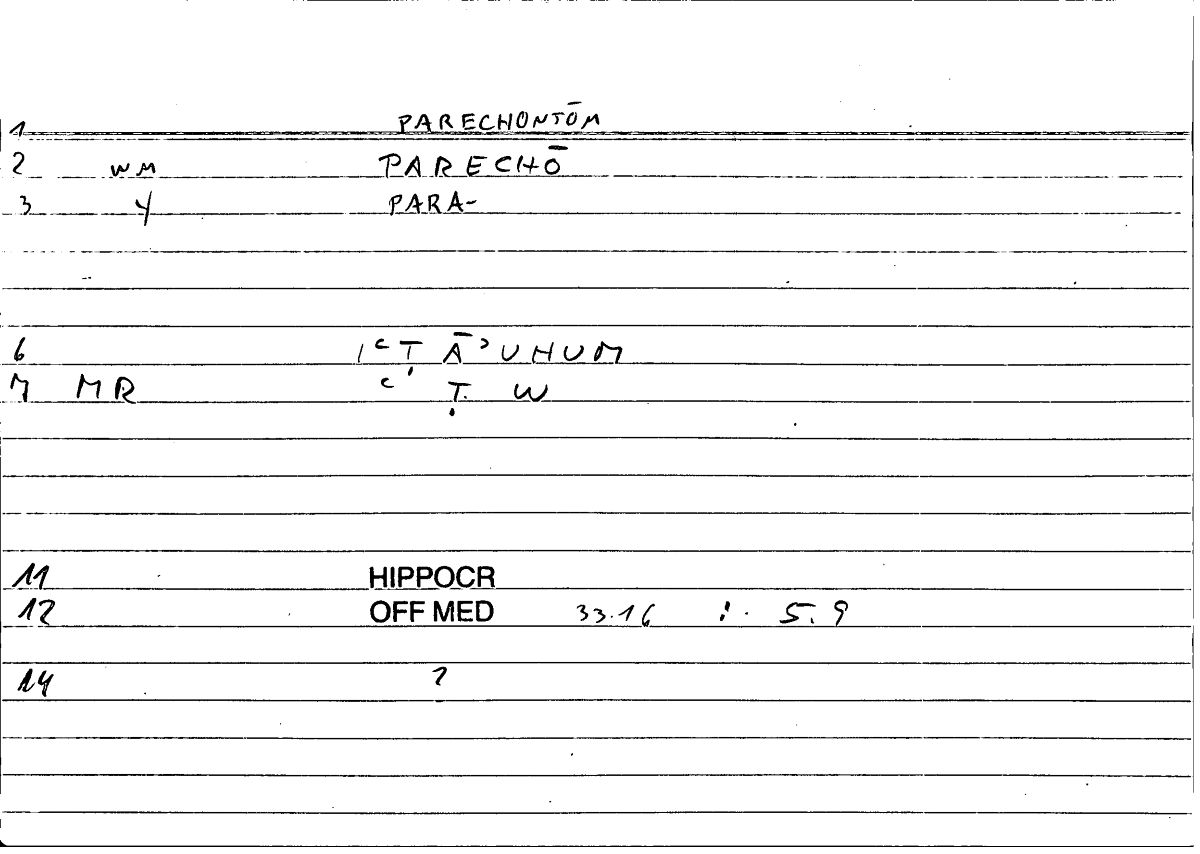 1 PARECHONTŌM
2 WM PARECHŌ
3 Y PARA-
6 UHUM
7 MR T. W
11 HIPPOCR
12 OFF MED 33.16 : 5.9
14 2